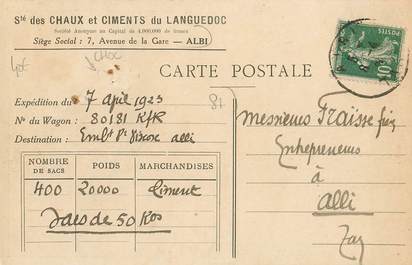 Sté des CHAUX et CIMENTS du LANGUEDOC
Société Anonyme au Capital de 4.000.000 de francs
Siège Social : 7, Avenue de la Gare — ALBI
CARTE POSTALE
POSTES
10
Expédition du 7 April 1923
81
No du Wagon : 80181
Destination : Embt
albi
NOMBRE DE SACS
POIDS
MARCHANDISES
400
20000
Ciment
Sacs de 50 Kos
Messieurs Fraisse
Entrepreneurs
à
albi